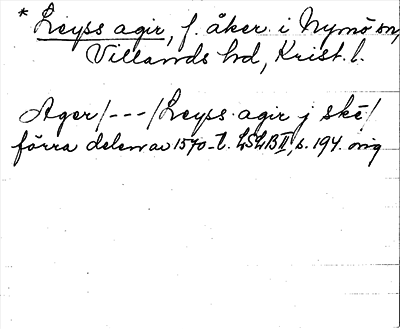 * Leyss agir, f. åker i Nymö sn,
Villands hd, Krist. l.
Ager/---/Leyss agir j skē/
förra delen av 1540-t. LSLB II, s. 194. orig